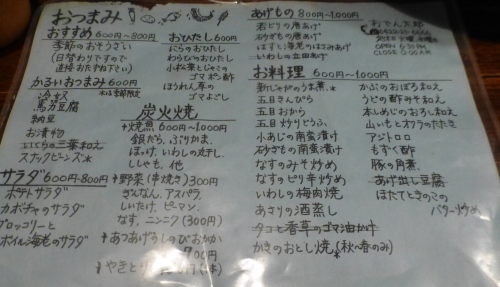 おつまみ
おすすめ 600円~800円
季節のおそうざい
(日替わりですので
直接おたずね下さい)
かるいおつまみ 600円
冷奴 *は季節限定
馬刀豆腐
納豆
お漬物
いくらの三葉和え
スナックビーンズ*
サラダ 600円~800円
ポテトサラダ
カボチャのサラダ
ブロッコリーと
ボイル海老のサラダ
おひたし 600円
にらのおひたし
わらびのおひたし
小松菜とじゃこの
ゴマポン酢
ほうれん草の
ゴマよごし
炭火焼
焼魚 600円~1,000円
銀だら、ぶりかま、
ほっけ、いわしの丸干し、
ししゃも、他
野菜(串焼き)300円
ぎんなん、アスパラ、
しいたけ、ピーマン、
なす、ニンニク(300円)
あつあげうしのぴおかか
700円
やきとり
あげもの 800円~1,000円
若どりの唐あげ
砂ぎもの唐あげ
はすと海老のはさみあげ
いわしの立田あげ
おでん太郎
OPEN 6:30 PM
CLOSE 0:00 AM
お料理 600円~1,000円
新じゃがのうま煮*
五目きんぴら
五目おから
五目炒りどうふ
小あじの南蛮漬け
砂ぎもの南蛮漬け
なすのみそ炒め
なすのピリ辛炒め
いわしの梅肉焼
あさりの酒蒸し
タコと香草のゴマ油かけ
かきのおとし焼*(秋~春のみ)
かぶのおぼろまぶえ
うどの酢みそ和え
本しめじのおろし和え
山いもとオクラのたたき
アジトロロ
もずく酢
豚の角煮
あげ出し豆腐
ほたてときのこの
バター炒め